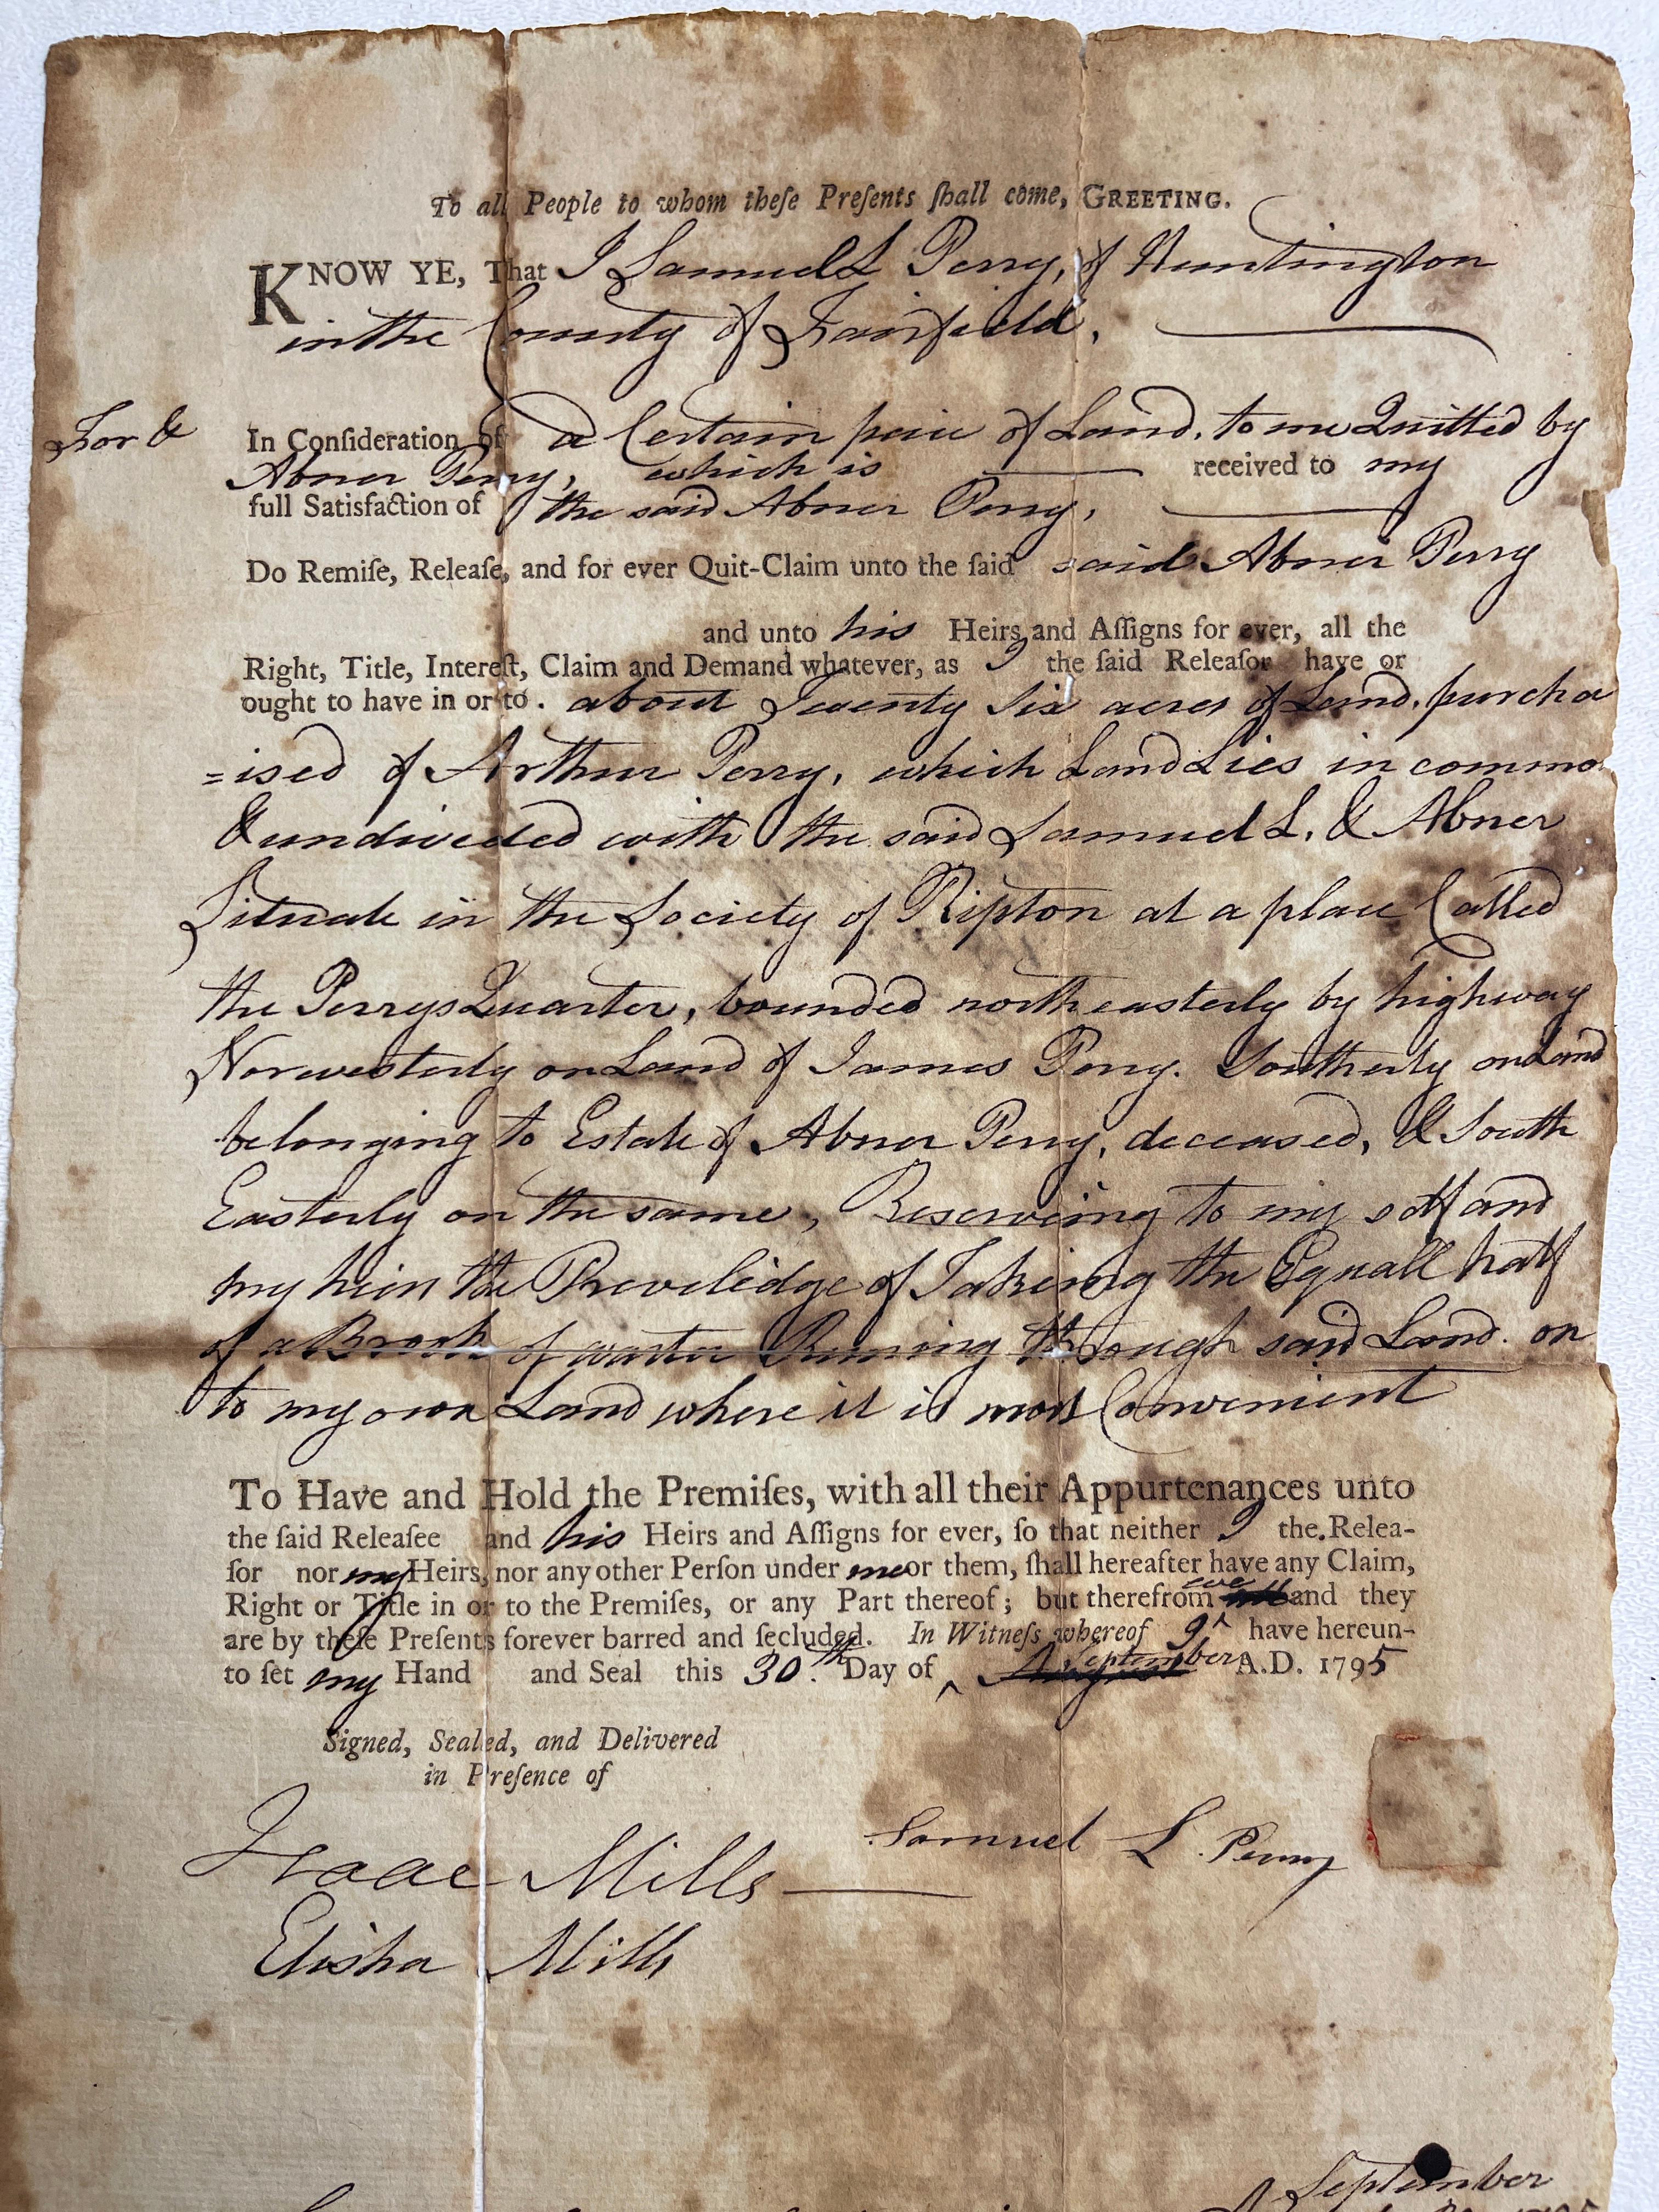 To all People to whom theſe Preſents ſhall come, GREETING.
KNOW YE, That I Samuel L Perry, of Huntington
in the County of Fairfield,
For & In Conſideration of a Certain peice of Land, to me Quitted by
Abner Perry, which is received to my
full Satisfaction of the said Abner Perry,
Do Remiſe, Releaſe, and for ever Quit-Claim unto the ſaid said Abner Perry
and unto his Heirs and Aſſigns for ever, all the
Right, Title, Intereſt, Claim and Demand whatever, as I the ſaid Releaſor have or
ought to have in or to. about Twenty Six acres of Land, purcha
=ised of Arthur Perry, which Land Lies in common
& undiveded with the said Samuel L. & Abner
Situate in the Society of Ripton at a place Called
the Perrys Quarter, bounded northeasterly by highway
Norwesterly on Land of James Perry. Southerly on Land
belonging to Estate of Abner Perry, deceased, & South
Easterly on the same, Reserveing to my self and
my heirs the Proveledge of Takeing the Equall half
of a Brook of warter Runing through said Land. on
to my own Land where it is most Convenient
To Have and Hold the Premiſes, with all their Appurtenances unto
the ſaid Releaſee and his Heirs and Aſſigns for ever, ſo that neither I the Relea-
ſor nor my Heirs, nor any other Perſon under me or them, ſhall hereafter have any Claim,
Right or Title in or to the Premiſes, or any Part thereof; but therefrom and they
are by theſe Preſents forever barred and ſecluded. In Witneſs whereof I have hereun-
to ſet my Hand and Seal this 30.th Day of ^ August September A.D. 1795
Signed, Sealed, and Delivered
in Preſence of
Isaac Mills
Samuel L. Perry
Elisha Mills
September